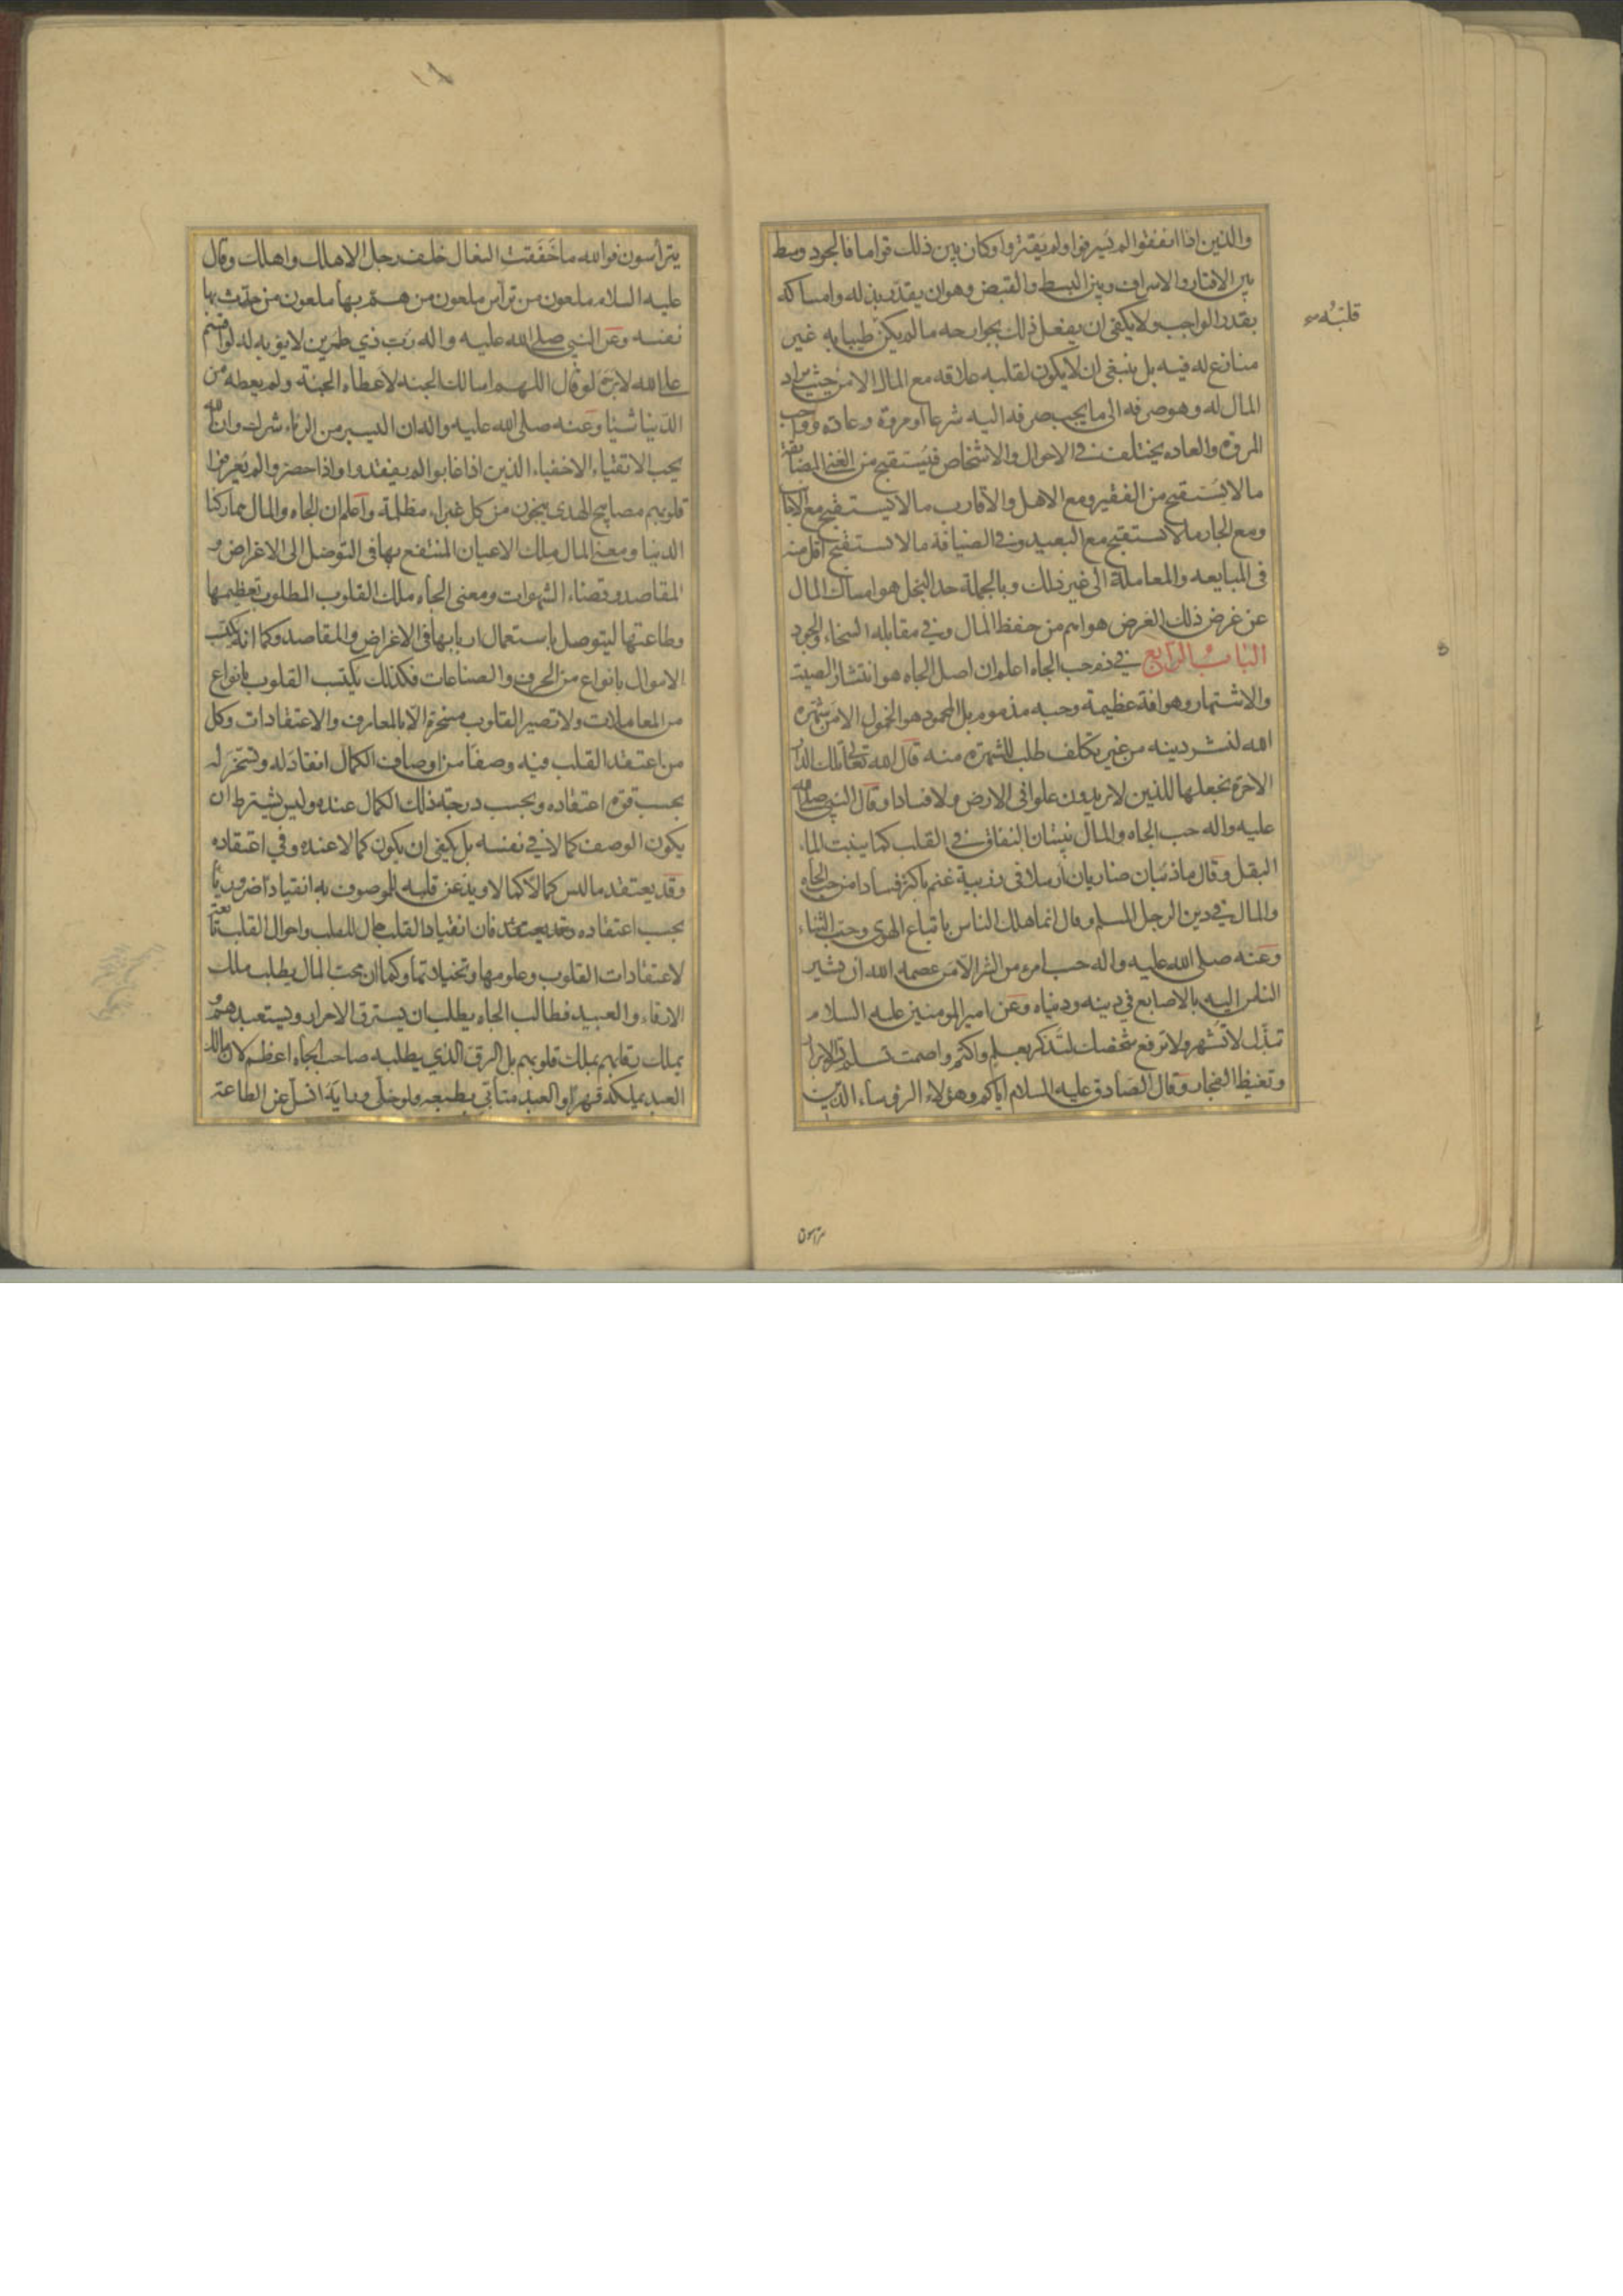 والذين اذا انفقوا لم يسرفوا ولم يقتروا وكان بين ذلك قواما فالجود وسط
بين الاقتار والاسراف وبين البسط والقبض وهو ان يقدر بذله وامساكه
بقدر الواجب ولا يكفى ان يفعل ذلك بجوارحه ما لم يكن طيبا به غير
قلبُه
منازع له فيه بل ينبغى ان لا يكون لقلبه علاقه مع المال الا من حيث يراد
المال له وهو صرفه الى ما يجب صرفه اليه شرعا او مروة وعادة وواجب
المروة والعاده يختلف فى الاحوال والاشخاص فيستقبح من الغنى المضايقة
ما لا يستقبح من الفقير ومع الاهل والاقارب ما لا يستقبح مع الاجانب
ومع الجار ما لا يستقبح مع البعيد وفى الضيافة ما لا يستقبح اقل منه
فى المبايعه والمعاملة الى غير ذلك وبالجملة حد البخل هو امساك المال
عن غرض ذلك الغرض هو اهم من حفظ المال وفى مقابله السخاء والجود
الباب الرابع فى ذم حب الجاه اعلم ان اصل الجاه هو انتشار الصيت
والاشتهار وهو افة عظيمة وحبه مذموم بل المحمود هو الخمول الا من شهره
الله لنشر دينه من غير تكلف طلب للشهرة منه قال الله تعالى تلك الدار
الاخرة نجعلها للذين لا يريدون علوا فى الارض ولا فسادا وقال النبى صلى الله
عليه واله حب الجاه والمال ينبتان النفاق فى القلب كما ينبت الماء
البقل وقال ما ذئبان ضاريان ارسلا فى زريبة غنم باكثر فسادا من حب الجاه
والمال فى دين الرجل المسلم وقال انما هلك الناس باتباع الهوى وحب الثناء
وعنه صلى الله عليه واله حسب امرء من الشر الا من عصمه الله ان يشير
الناس اليه بالاصابع فى دينه ودنياه وعن امير المومنين عليه السلام
تبذّل لا تشهر ولا ترفع شخصك لتذكر بعلم واكتم واصمت تسلم تسر الابرار
وتغيظ الفجار وقال الصادق عليه السلام اياكم وهؤلاء الرؤساء الذين
يتراسون
يتراسون فوالله ما خفقت النعال خلف رجل الا هلك واهلك وقال
عليه السلام ملعون من تراس ملعون من همّ بها ملعون من حدث بها
نفسه وعن النبى صلى الله عليه واله رب ذى طمرين لا يؤبه له لو اقسم
على الله لابرّه لو قال اللهم اسالك الجنة لاعطاه الجنة ولم يعطه من
الدنيا شيئا وعنه صلى الله عليه واله ان اليسير من الرياء شرك وان الله
يحب الاتقياء الاخفياء الذين اذا غابوا لم يفقدوا واذا حضروا لم يعرفوا
قلوبهم مصابيح الهدى ينجون من كل غبراء مظلمة واعلم ان الجاه والمال هما ركنا
الدنيا ومعنى المال ملك الاعيان المنتفع بها فى التوصل الى الاغراض و
المقاصد وقضاء الشهوات ومعنى الجاه ملك القلوب المطلوب تعظيمها
وطاعتها ليتوصل باستعمال اربابها فى الاغراض والمقاصد وكما انه يكتسب
الاموال بانواع من الحرف والصناعات فكذلك يكتسب القلوب بانواع
من المعاملات ولا تصير القلوب مسخرة الا بالمعارف والاعتقادات وكل
من اعتقد القلب فيه وصفا من اوصاف الكمال انقاد له وتسخر له
بحسب قوة اعتقاده وبحسب درجة ذلك الكمال عنده وليس يشترط ان
يكون الوصف كمالا فى نفسه بل يكفى ان يكون كمالا عنده وفى اعتقاده
وقد يعتقد ما ليس كمالا كمالا ويذعن قلبه للموصوف به انقيادا ضروريا
بحسب اعتقاده فان انقياد القلب حال للقلب واحوال القلب تابعة
لاعتقادات القلوب وعلومها وتخيلاتها وكما ان محب المال يطلب ملك
الارقاء والعبيد فطالب الجاه يطلب ان يسترق الاحرار ويستعبدهم و
يملك رقابهم بملك قلوبهم بل الرق الذى يطلبه صاحب الجاه اعظم لان مالك
العبد يملكه قهرا والعبد متأبّى بطبعه ولو خلى ورايه انسل عن الطاعة